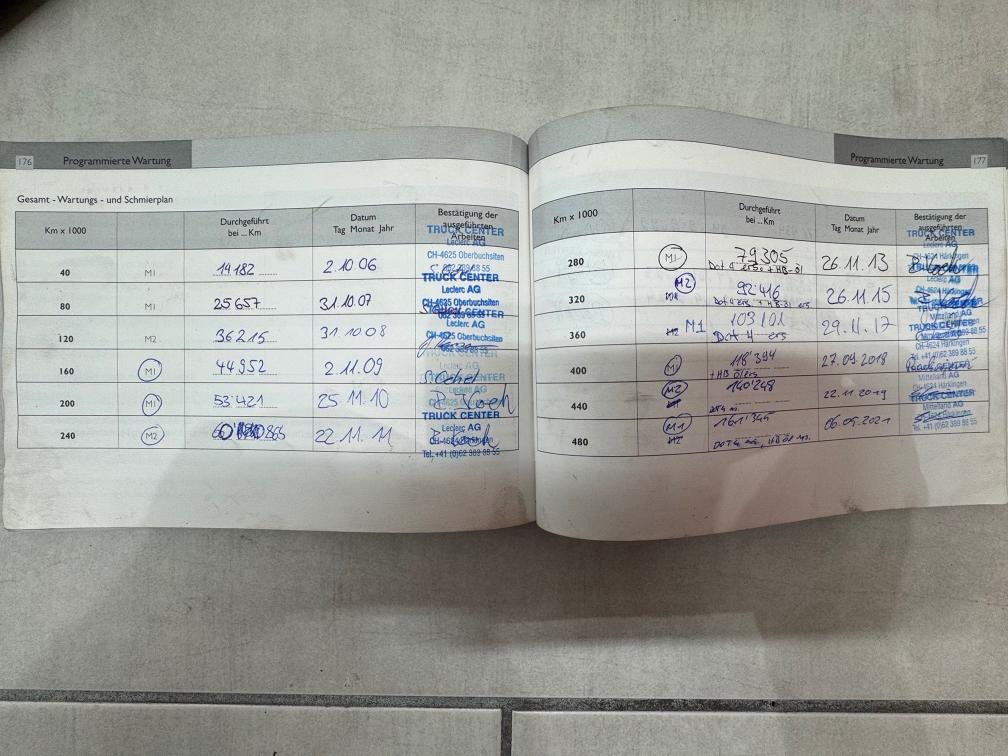 176 Programmierte Wartung
Gesamt - Wartungs - und Schmierplan
Km x 1000 Durchgeführt bei ... Km Datum Tag Monat Jahr Bestätigung der ausgeführten Arbeiten
TRUCK CENTER
Leclerc AG
40 M1 19182 2.10.06
CH-4625 Oberbuchsiten
062 389 88 55
TRUCK CENTER
Leclerc AG
80 M1 25657 31.10.07
CH-4625 Oberbuchsiten
062 389 88 55
120 M2 36215 31 10 08
Leclerc AG
CH-4625 Oberbuchsiten
160 M1 44952 2.11.09
200 M1 53'421 25.11.10
TRUCK CENTER
240 M2 865 22.11.11
Leclerc AG
CH-4624 Härkingen
Tel. +41 (0)62 389 88 55
Programmierte Wartung 177
Km x 1000 Durchgeführt bei ... Km Datum Tag Monat Jahr Bestätigung der ausgeführten Arbeiten
TRUCK CENTER
Leclerc AG
280 M1 79305 26.11.13
Dot 4 ers. + HB-Öl
CH-4624 Härkingen
TRUCK CENTER
320 M2 92416 26.11.15
Dot 4 ers + HB-Öl ers
360 M2 M1 103101 29.11.17
Dot 4 ers
TRUCK CENTER
Mittelland AG
CH-4624 Härkingen
400 M1 118'394 27.09.2018
+ HB Öl ers
Mittelland AG
440 M2 140'248 22.11.2019
TRUCK CENTER
Mittelland AG
480 M1 M2 161'345 06.05.2021
Tel. +41 (0)62 389 88 55